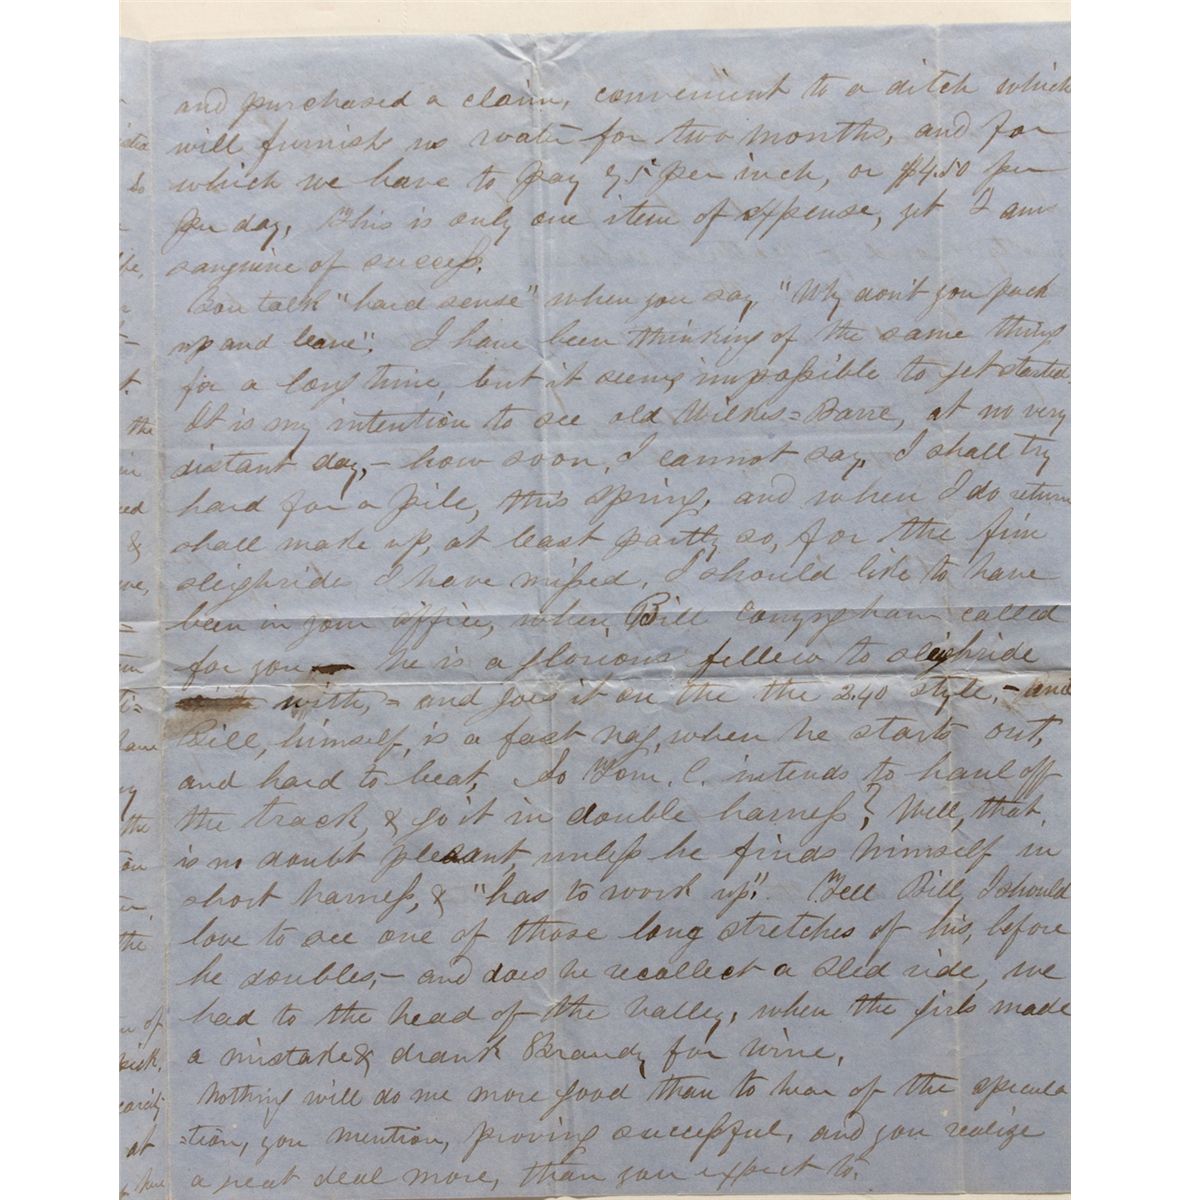 and purchased a claim, convenient to a ditch which
will furnish us water for two months, and for
which we have to pay 75 per inch, or $4.50 per
per day, This is only one item of expense, yet I am
sanguine of success.
You talk "hard sense" when you say, "Why don't you pack
up and leave". I have been thinking of the same thing
for a long time, but it seems impossible to get started.
It is my intention to see old Wilkes=Barre, at no very
distant day, - how soon, I cannot say, I shall try
hard for a pile, this spring, and when I do return
shall make up, at least partly so, for the fine
sleighride I have missed, I should like to have
been in your office, when Bill Conyngham called
for you he is a glorious fellow to sleighride
with, = and goes it on the the 2.40 style, - and
Bill, himself, is a fast nag, when he starts out,
and hard to beat, So Tom. C. intends to haul off
the track, & go it in double harness? Well, that
is no doubt pleasant, unless he finds himself in
short harness, & "has to work up". Tell Bill, I should
love to see one of those long stretches of his, before
he doubles, - and does he recollect a sled ride, we
had to the head of the valley, when the girls made
a mistake & drank Brandy for wine,
Nothing will do me more good than to hear of the specula
=tion, you mention, proving successful, and you realize
a great deal more, than you expect to.